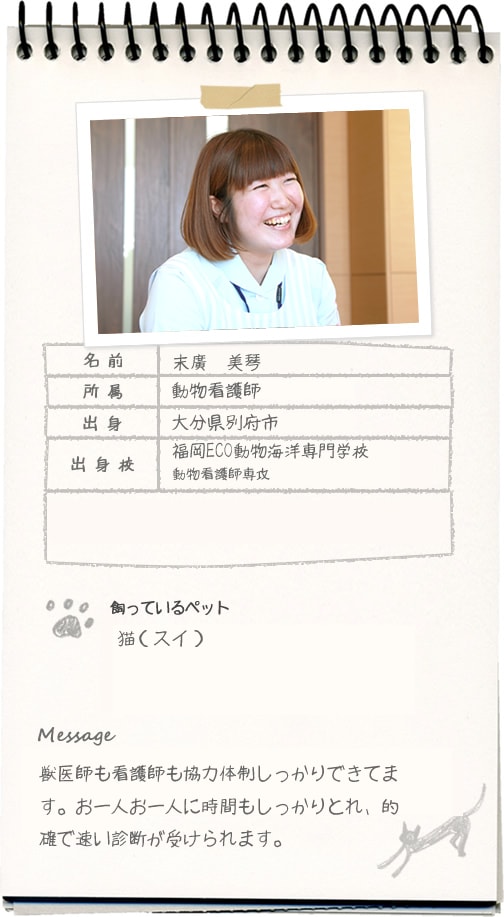 名前 末廣 美琴
所属 動物看護師
出身 大分県別府市
出身校 福岡ECO動物海洋専門学校
動物看護師専攻
飼っているペット
猫(スイ)
Message
獣医師も看護師も協力体制しっかりできてま
す。お一人お一人に時間もしっかりとれ、的
確で速い診断が受けられます。